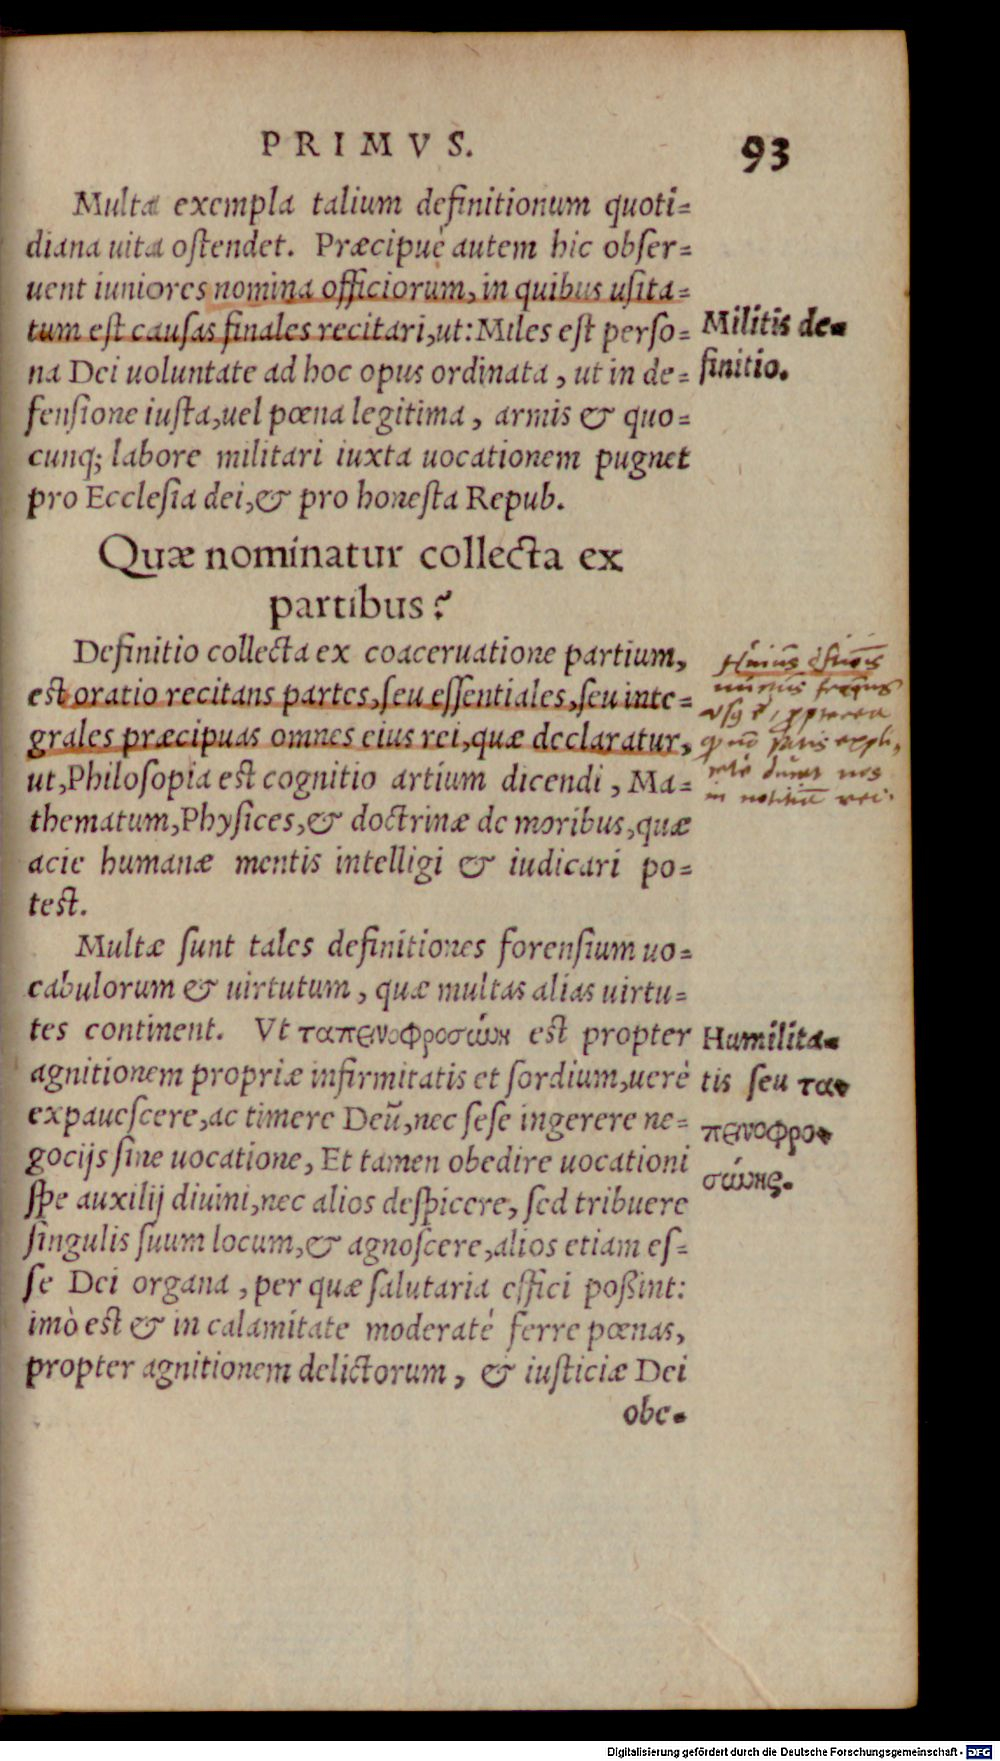 PRIMVS. 93
Multa exempla talium definitionum quoti=
diana uita oſtendet. Præcipuè autem hic obſer=
uent iuniores nomina officiorum, in quibus uſita=
tum eſt cauſas finales recitari, ut: Miles eſt perſo=
na Dei uoluntate ad hoc opus ordinata, ut in de=
fenſione iuſta, uel pœna legitima, armis & quo=
cunq; labore militari iuxta uocationem pugnet
pro Eccleſia dei, & pro honeſta Repub.
Militis de=
finitio.
Quæ nominatur collecta ex
partibus?
Definitio collecta ex coaceruatione partium,
eſt oratio recitans partes, ſeu eſſentiales, ſeu inte=
grales præcipuas omnes eius rei, quæ declaratur,
ut, Philoſopia eſt cognitio artium dicendi, Ma=
thematum, Phyſices, & doctrinæ de moribus, quæ
acie humanæ mentis intelligi & iudicari po=
teſt.
in notitiã rei.
Multæ ſunt tales definitiones forenſium uo=
cabulorum & uirtutum, quæ multas alias uirtu=
tes continent. Vt ταπεινοφροσύνη eſt propter
agnitionem propriæ infirmitatis et ſordium, uerè
expaueſcere, ac timere Deũ, nec ſeſe ingerere ne=
gocijs ſine uocatione, Et tamen obedire uocationi
ſpe auxilij diuini, nec alios deſpicere, ſed tribuere
ſingulis ſuum locum, & agnoſcere, alios etiam eſ=
ſe Dei organa, per quæ ſalutaria effici poßint:
imò eſt & in calamitate moderatè ferre pœnas,
propter agnitionem delictorum, & iuſticiæ Dei
obe=
Humilita=
tis ſeu τα=
πεινοφρο=
σύνης.
Digitalisierung gefördert durch die Deutsche Forschungsgemeinschaft - DFG